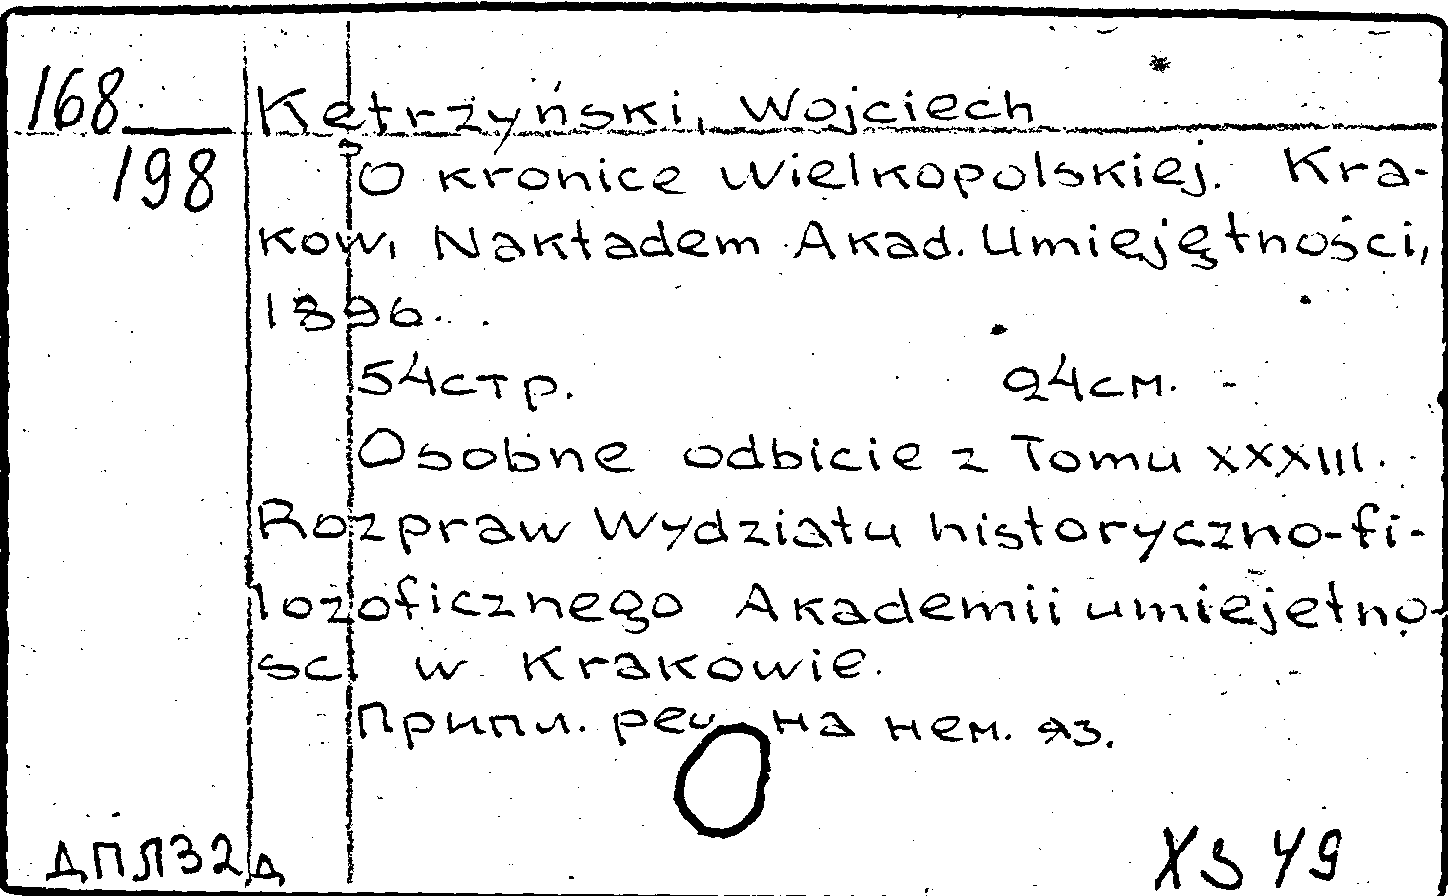 168 Kętrzyński, Wojciech
198 O kronice Wielkopolskiej. Kra-
kow, Nakładem Akad. Umiejętności,
1896.
54 стр. 24 см.
Osobne odbicie z Tomu XXXIII.
Rozpraw Wydziału historyczno-fi-
lozoficznego Akademii umiejetno-
sci w Krakowie.
Припл. рец. на нем. яз.
ДПЛ32д XS 49